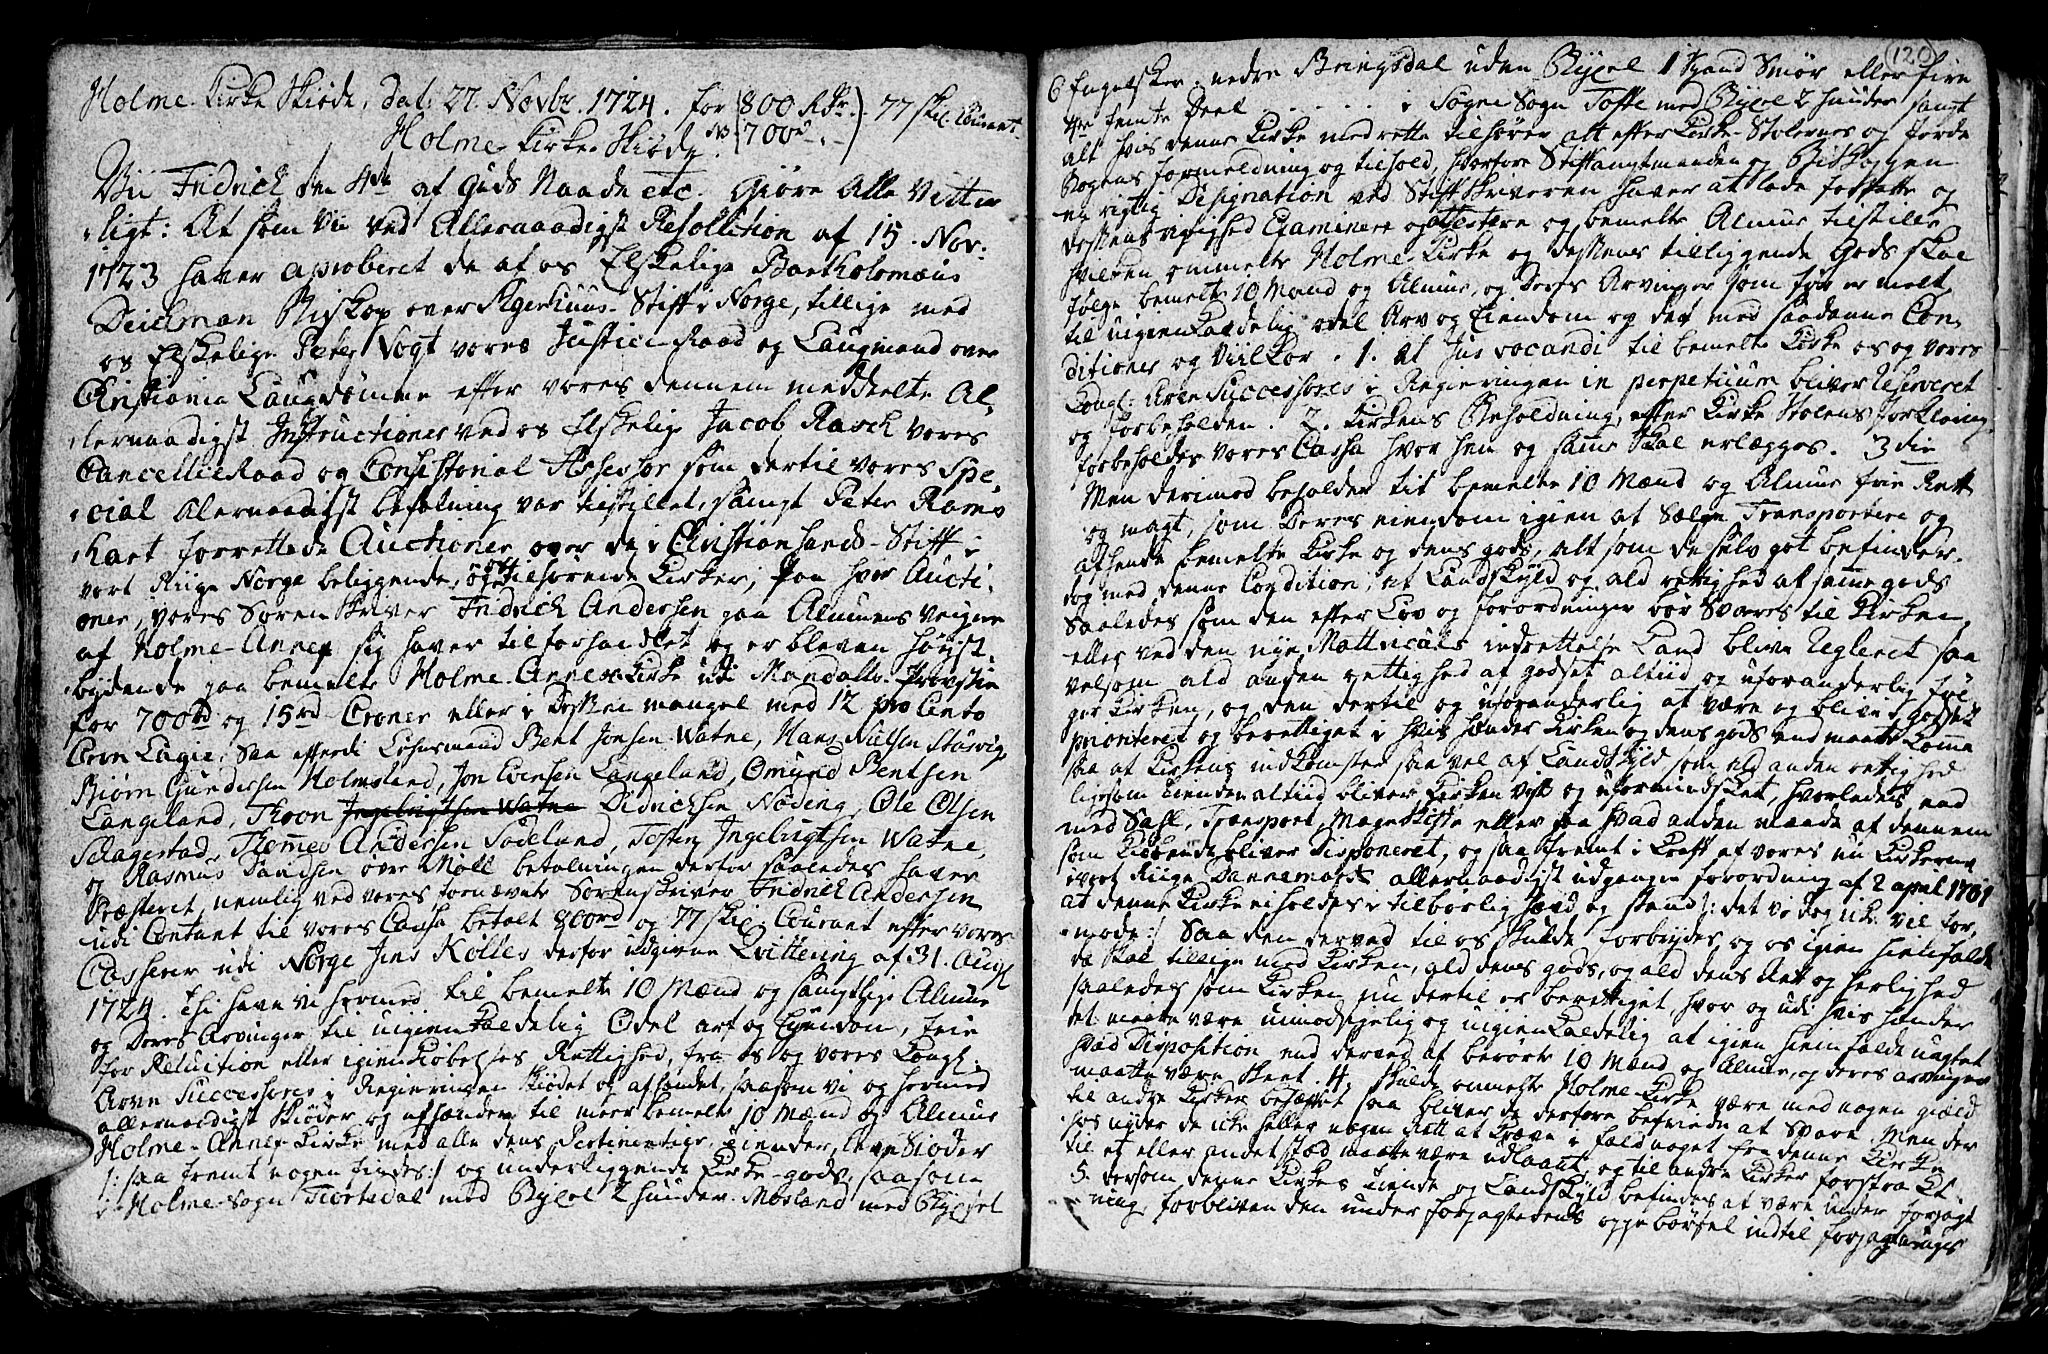 Holme Kirke Skiøde, dat: 27. Novbr. 1724. for (800 Rdr.) 77 skil. Courant.
Holme Kirkes Skiøde. NB (700d.)
Vii Fridrich den 4de af Guds Naade etc. Giøre Alle Vitter
ligt: At som Vii ved Allernaadigst Resolution af 15. Nov:
1723 haver aproberet de af os Elskelige Bartholomæus
Deichman Biskop over Agershuus Stift i Norge, tillige med
os Elskelige Peter Vogt vores Justice Raad og Laugmand over
Christiania Laugdømme efter vores dennem meddeelte Al,
lernaadigst Instructioner ved os Elskelige Jacob Rasch vores
Cancellie Raad og Consistorial Assessor som dertil vores Spe,
cial Alernaadigst befalning var tilstillet, sampt Peter Rams
hart forrettede Auctioner over de i Christiansands-Stift i
vort Riige Norge beliggende, og os tilhørende Kirker; paa hver Aucti,
oner, vores Sørenskriver Fridrich Andersen paa Almuens vegne
af Holme-Annex sig haver tilforhandlet og er bleven høyst,
bydende paa bemelte Holme-Annex Kirke udi Mandalls-Provstie
for 700rd og 15rd Croner eller i Dessen mangel med 12 pro Cento
Cron Lagie, Saa efterdi Lehnsmand Bent Jonsen Watne, Hans Nielsen Støsvig,
Biørn Gundersen Holmsland, Jon Evensen Langeland, Omund Bentsen
Langeland, Thron Ingebrigtsen Watne Didrichsen Nøding, Ole Olsen
Sclagestad, Thomes Andersen Sodelund, Tosten Ingebrigtsen Watne,
og Rasmus Davidsen over Møll betalningen derfor saaledes haver
Præsteret, nemlig ved vores fornævnte Sorenskriver Fridrich Andersen
udi Contant til vores Cassa betalt 800rd og 77 skil: Courant efter vores
Casserer udi Norge Jens Kolles derfor udgivne Qvittering af 31. Aug:
1724. Thi have vi hermed til bemelte 10 Mænd og samptlige Almue
og Deres Arvinger til uigienkaldelig Odel arf og Eyendom, frie
for Reluition eller igienkiøbelses Rettighed, fra os og vores Kongl:
Arve Successores i Regieringen skiødet og afhændet, saasom vi og hermed
allernaadigst skiøder og afhænder til meer bemelte 10 Mænd og Almue
Holme-Annex Kirke med alle dens Pertinentier, Tiender,
/: saa fremt nogen findes :/ og underliggende Kirke-gods, saasom
i Holme-Sogn Tiortedal med Byxel 2 huuder. Mosland med Byxel
120
6 Engelsker. nedre Bringsdal uden Byxel 1 Spand Smør eller fire
femte Deel . . . . . . i Søgne Sogn Tofte med Byxel 2 huuder sampt
alt hvis denne Kirke med rette tilhører alt efter Kirke-Stolernes og Jorde
Bogens formeldning og tilhold, hvorfore Stiftamptmanden og Biskoppen
en rigtig Designation ved Stiftskriveren haver at lade forfatte og
Dessens rigtighed Examinere og attestere og bemelte Almue tilstille,
hvilken ommelte Holme-Kirke og dessens tilliggende Gods skal
følge bemelte 10 Mænd og Almue, og Deres Arvinger som før er melt
til uigienkaldelig odel Arv og Eiendom og det med saadanne Con,
ditioner og Viilkor. 1. At Jus vocandi til bemelte Kirke os og vores
Kongl: Arve Successores i Regieringen in perpetuum bliver Reserveret
og forbeholden. 2. Kirkens Beholdning, efter Kirke Stolens forklaring,
forbeholdes vores Cassa hvor hen og samme skal erlægges. 3die
Men derimod beholder tit bemelte 10 Mænd og Almue frie Rett
og magt, som Deres eiendom igien at Sælge Transportere og
afhende bemelte Kirke og dens gods, alt som de selv got befinder.
dog med denne Condition, at Landskyld og ald rettighed af samme gods
Saaledes som den efter Lov og forordninger bør Svares til Kirken,
eller ved den nye Mattriculs indrettelse kand blive Regleret saa
velsom ald anden rettighed af godset altiid og uforanderlig føl
ger Kirken, og den dertil og uforanderlig at være og blive, godset
prioriteret og berettiget i hvis hænder Kirken og dens gods end maatte komme
saa at Kirkens indkomster saa vel af Landskyld som ald anden rettighed
ligesom tienden altiid bliver Kirken vist og uformindsket, hvorledes end
med Sahl, Transport, Mageskifte eller paa hvad anden maade af dennem
som Kiøbende bliver Disponeret, og saa fremt i kraft af vores nu Kirkerne
i vort Riige Dannemark allernaadigst udgangne forordning af 2 april 1701
at denne Kirke ei holdes i tilbørlig stand og stand /: det vi dog icke vil for,
mode :/ Saa den derved til os skulde forbrydes, og os igien hiemfalde
da skal tillige med Kirken, ald dens gods, og ald dens Rett og herlighed
saaledes som Kirken nu dertil er berettiget, hvor og udi hvis hænder
et maatte være umodsigelig og uigienkaldelig at igien hiemfalde uagtet
hvad Disposition end derved af berørte 10 Mænd og Almue, og deres arvinger
maatte være skeet. 4. skulde ommelte Holme-Kirke være med nogen giæld
til andre Kirker behæftet saa bliver de derfore befriede at Svare. Men der
hos nyder de icke heller nogen Rett at kræve i fald noget fra denne Kirke
til et eller andet stæd maatte være udlaant, og til andre Kirker forstrakt.
5. dersom denne Kirkes tiende og Landskyld befindes at være under forpagt
ning, forbliver den under forpagterens oppebørsel indtil forpagtnings